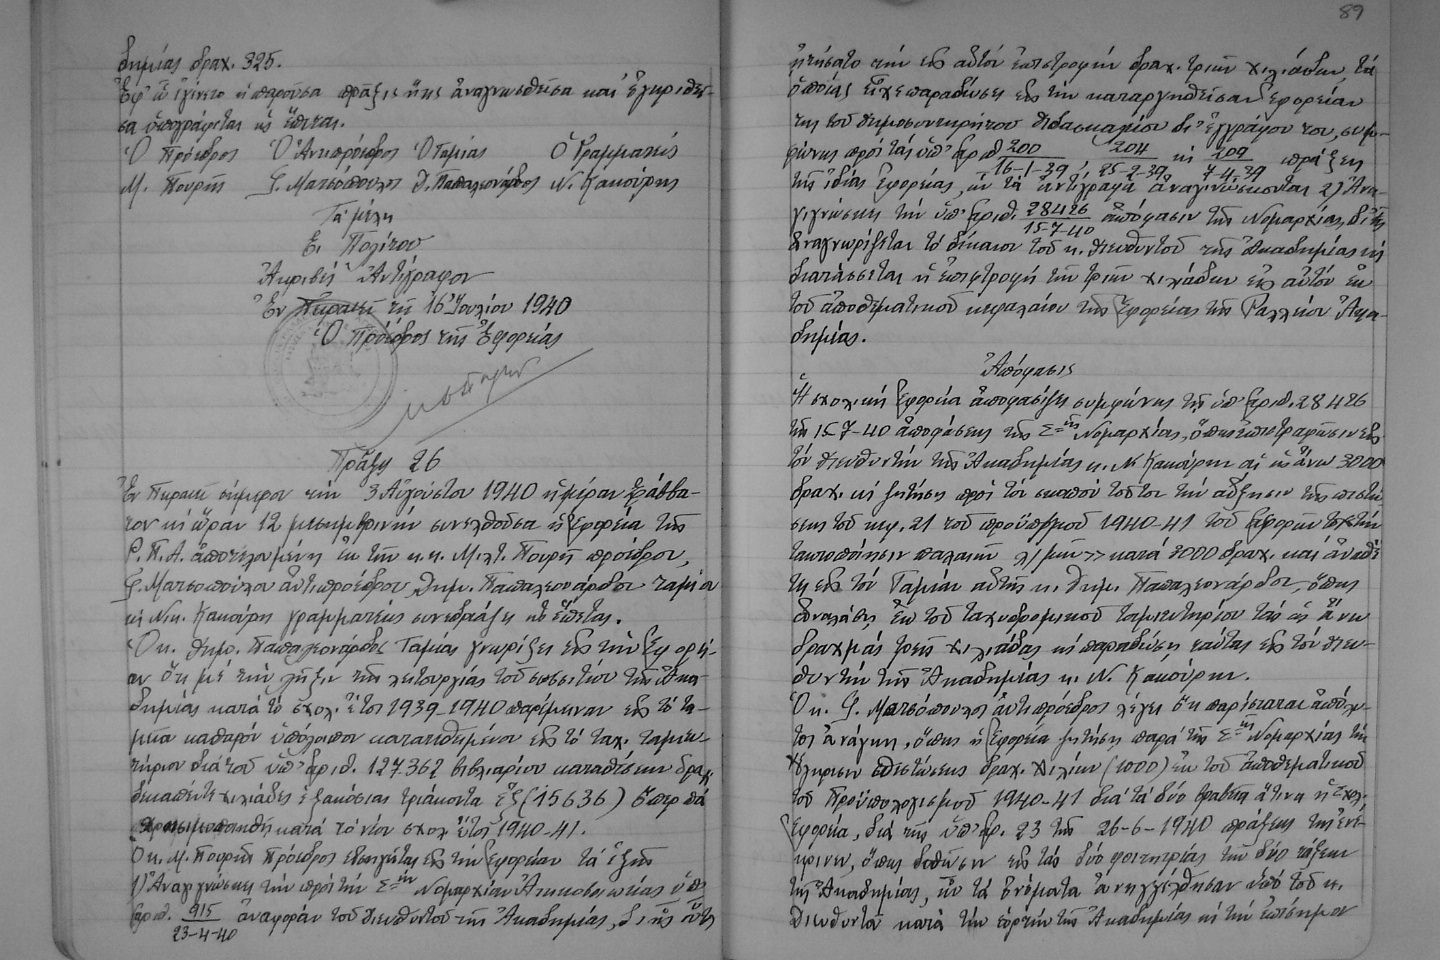 δημίας δραχ. 325.
Ἐφ' ᾧ ἐγένετο ἡ παροῦσα πρᾶξις ἥτις ἀναγνωσθεῖσα καὶ ἐγκριθεῖ-
σα ὑπογράφεται ὡς ἕπεται.
Ὁ Πρόεδρος Ὁ Ἀντιπρόεδρος Ὁ Ταμίας Ὁ Γραμματεύς
Μ. Πουρῆς Γ. Ματσόπουλος Δ. Παπαλεονάρδος Ν. Κακούρης
Τά μέλη
Ε. Πολίτου
Ἀκριβές Ἀντίγραφον
Ἐν Πειραιεῖ τῇ 16 Ἰουλίου 1940
Ὁ Πρόεδρος τῆς Ἐφορείας
Πρᾶξις 26
Ἐν Πειραιεῖ σήμερον τήν 3 Αὐγούστου 1940 ἡμέραν Σάββα-
τον καί ὥραν 12 μεσημβρινήν συνελθοῦσα ἡ Ἐφορεία τῆς
Ρ. Π. Α. ἀποτελουμένη ἐκ τῶν κ.κ. Μιλτ. Πουρῆ προέδρου,
Γ. Ματσοπούλου ἀντιπροέδρου, Δημ. Παπαλεονάρδου ταμίου
καί Νικ. Κακούρη γραμματέως συνεδριάζει ὡς ἕπεται.
Ὁ κ. Δημ. Παπαλεονάρδος Ταμίας γνωρίζει εἰς τήν Ἐφορεί-
αν ὅτι μέ τήν λῆξιν τῆς λειτουργίας τοῦ συσσιτίου τῆς Ἀκα-
δημίας κατά τό σχολ. ἔτος 1939-1940 παρέμειναν εἰς τό τα-
μεῖον καθαρόν ὑπόλοιπον κατατεθειμένον εἰς τό ταχ. ταμιευ-
τήριον διά τοῦ ὑπ' ἀριθ. 127.362 βιβλιαρίου καταθέσεων δραχ.
δεκαπέντε χιλιάδες ἑξακόσιαι τριάκοντα ἕξ (15636) ὅπερ θά
χρησιμοποιηθῇ κατά τό νέον σχολ. ἔτος 1940-41.
Ὁ κ. Μ. Πουρῆς Πρόεδρος εἰσηγεῖται εἰς τήν Ἐφορείαν τά ἑξῆς
1) Ἀναγιγνώσκει τήν πρός τήν Σ-τήν Νομαρχίαν Ἀττικοβοιωτίας ὑπ'
ἀριθ. 915/23-4-40 ἀναφοράν τοῦ Διευθυντοῦ τῆς Ἀκαδημίας, δι' ἧς οὗτος
89
ᾐτήσατο τήν εἰς αὐτόν ἐπιστροφήν δραχ. τριῶν χιλιάδων, τάς
ὁποίας εἶχε παραδώσει εἰς τήν καταργηθεῖσαν Ἐφορείαν
τῆς τοῦ δημοσυντηρήτου διδασκαλείου δι' ἐγγράφου του, συμ-
φώνως πρός τάς ὑπ' ἀριθ. 200/16-1-39, 204/25-2-39 καί 209/7-4-39 πράξεις
τῆς ἰδίας Ἐφορείας, ὧν τά ἀντίγραφα ἀναγινώσκονται 2) Ἀνα-
γιγνώσκει τήν ὑπ' ἀριθ. 28426/15-7-40 ἀπόφασιν τῆς Νομαρχίας, δι' ἧς
ἀναγνωρίζεται τό δίκαιον τοῦ κ. Διευθυντοῦ τῆς Ἀκαδημίας καί
διατάσσεται ἡ ἐπιστροφή τῶν τριῶν χιλιάδων εἰς αὐτόν ἐκ
τοῦ ἀποθεματικοῦ κεφαλαίου τῆς Ἐφορείας τῆς Ραλλείου Ἀκα-
δημίας.
Ἀπόφασις
Ἡ σχολική Ἐφορεία ἀποφασίζει συμφώνως τῇ ὑπ' ἀριθ. 28426
τῆς 15-7-40 ἀποφάσεως τῆς Σ-τῆς Νομαρχίας, ὅπως ἐπιστραφῶσιν εἰς
τόν Διευθυντήν τῆς Ἀκαδημίας κ. Ν. Κακούρην αἱ ὡς ἄνω 3000
δραχ. καί ζητήσῃ πρός τόν σκοπόν τοῦτον τήν αὔξησιν τῆς πιστώ-
σεως τοῦ κεφ. 21 τοῦ προϋπ/σμοῦ 1940-41 τοῦ ἀφορῶντος τήν
τακτοποίησιν παλαιῶν λ/σμῶν >> κατά 3000 δραχ. καί ἀναθέ-
τει εἰς τόν Ταμίαν αὐτῆς κ. Δημ. Παπαλεονάρδον, ὅπως
ἀναλάβῃ ἐκ τοῦ ταχυδρομικοῦ ταμιευτηρίου τάς ὡς ἄνω
δραχμάς τρεῖς χιλιάδας καί παραδώσῃ ταύτας εἰς τόν Διευ-
θυντήν τῆς Ἀκαδημίας κ. Ν. Κακούρην.
Ὁ κ. Γ. Ματσόπουλος ἀντιπρόεδρος λέγει ὅτι παρίσταται ἀπόλυ-
τος ἀνάγκη, ὅπως ἡ Ἐφορεία ζητήσῃ παρά τῆς Σ-τῆς Νομαρχίας τήν
ἔγκρισιν πιστώσεως δραχ. Χιλίων (1000) ἐκ τοῦ ἀποθεματικοῦ
τοῦ Προϋπολογισμοῦ 1940-41 διά τά δύο βραβεῖα ἅτινα ἡ Σχολ.
Ἐφορεία, διά τῆς ὑπ' ἀρ. 23 τῆς 26-6-1940 πράξεως της ἐνέ-
κρινεν, ὅπως δοθῶσιν εἰς τάς δύο φοιτητρίας τῶν δύο τάξεων
τῆς Ἀκαδημίας, ὧν τά ὀνόματα ἀνηγγέλθησαν ὑπό τοῦ κ.
Διευθυντοῦ κατά τήν ἑορτήν τῆς Ἀκαδημίας καί τήν ἐπίσημον